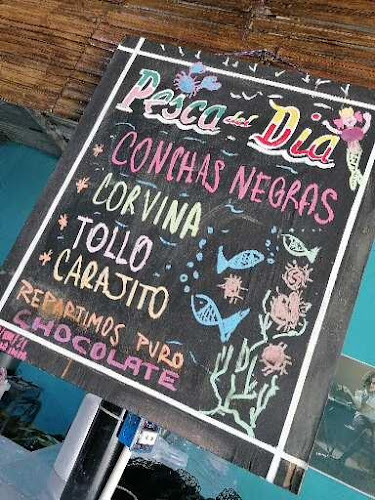 Pesca del Dia
* CONCHAS NEGRAS
* CORVINA
* TOLLO
* CARAJITO
REPARTIMOS PURO
CHOCOLATE